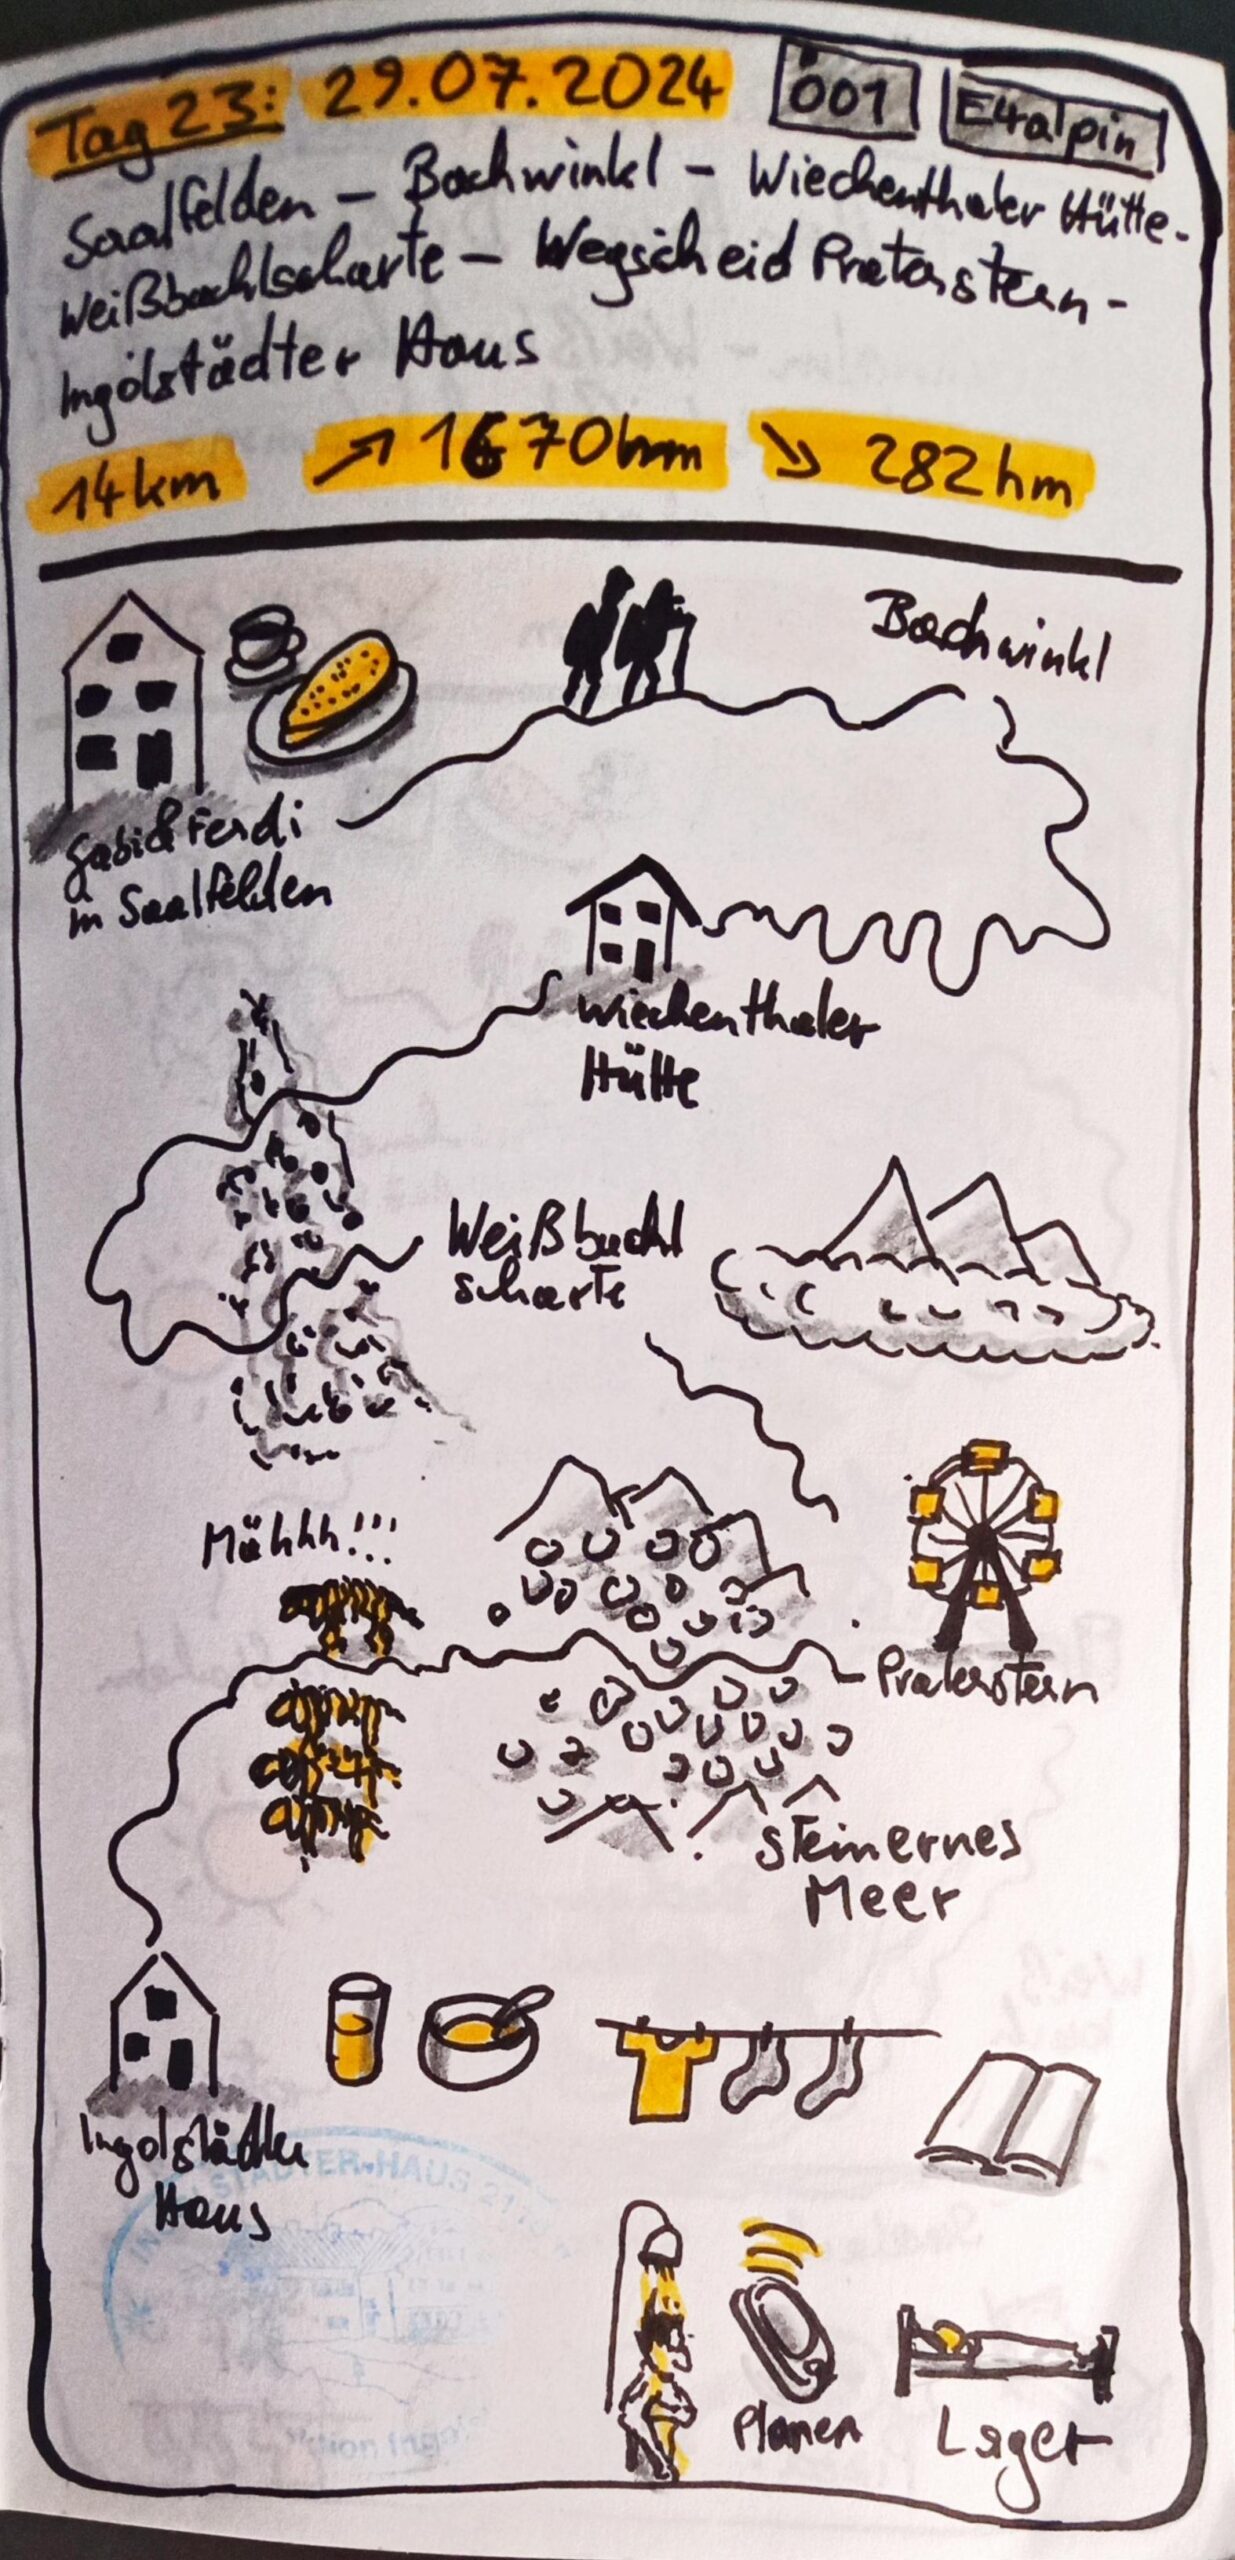 Tag 23: 29.07.2024 Ö01 E4alpin
Saalfelden - Bachwinkl - Wiechenthaler Hütte -
Weißbachlscharte - Wegscheid Praterstern -
Ingolstädter Haus
14km ↗ 1670hm ↘ 282hm
Bachwinkl
Gabi & Ferdi
in Saalfelden
Wiechenthaler
Hütte
Weißbachl
scharte
Mähhh!!!
Praterstern
Steinernes
Meer
Ingolstädter
Haus
STÄDTER-HAUS
Planen
Lager